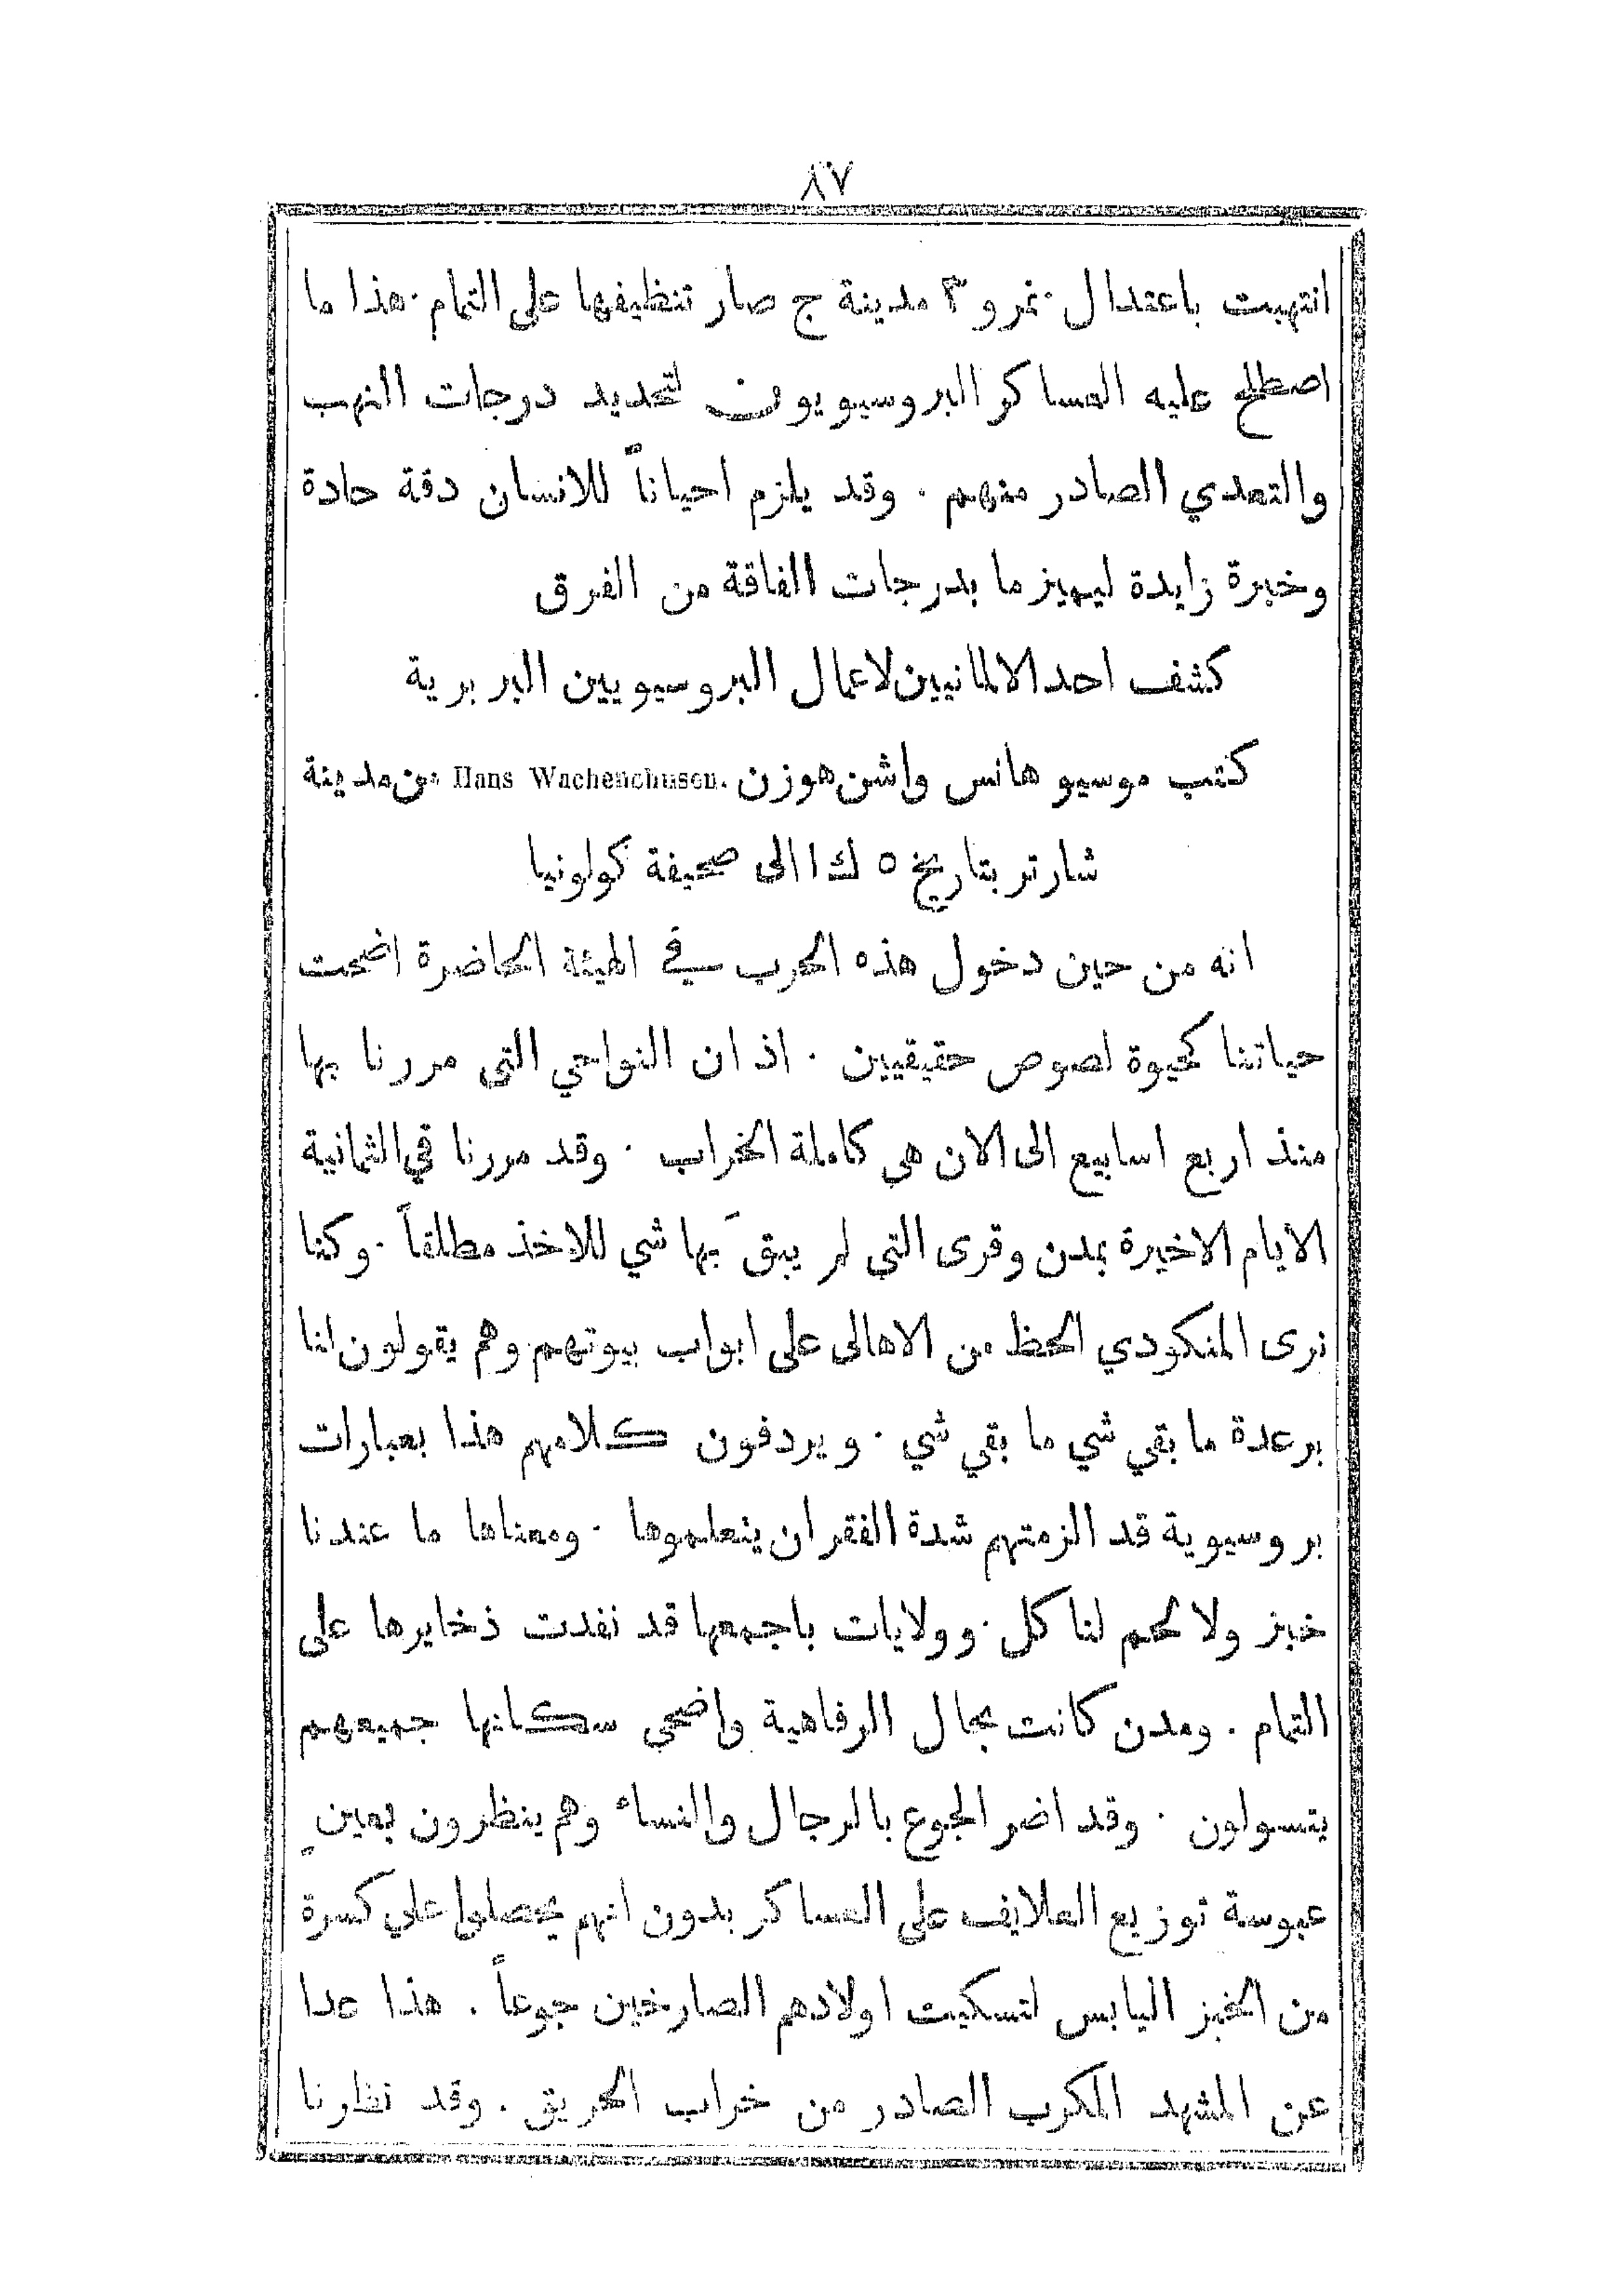 ٨٧
انتهبت باعتدال · نمرو ٣ مدينة ج صار تنظيفها على التمام · هذا ما
اصطلح عليه العساكر البروسيويون لتحديد درجات النهب
والتعدي الصادر منهم . وقد يلزم احياناً للانسان دقة حادة
وخبرة زايدة ليميز ما بدرجات الفاقة من الفرق
كشف احد الالمانيين لاعمال البروسيويين البربرية
كتب موسيو هانس واشن هوزن Hans Wachenchusen. من مدينة
شارتر بتاريخ ٥ ك ١ الى صحيفة كولونيا
انه من حين دخول هذه الحرب في الهيئة الحاضرة اضحت
حياتنا كحيوة لصوص حقيقيين . اذ ان النواحي التى مررنا بها
منذ اربع اسابيع الى الان هي كاملة الخراب . وقد مررنا في الثمانية
الايام الاخيرة بمدن وقرى التى لم يبقَ بها شي للاخذ مطلقاً . وكنا
نرى المنكودي الحظ من الاهالى على ابواب بيوتهم وهم يقولون لنا
برعدة ما بقي شي ما بقي شي . ويردفون كلامهم هذا بعبارات
بروسيوية قد الزمتهم شدة الفقر ان يتعلموها . ومعناها ما عندنا
خبز ولا لحم لناكل . وولايات باجمعها قد نفدت ذخايرها على
التمام . ومدن كانت بحال الرفاهية واضحى سكانها جميعهم
يتسولون . وقد اضر الجوع بالرجال والنساء وهم ينظرون بعينٍ
عبوسة توزيع العلايف على العساكر بدون انهم يحصلوا علي كسرة
من الخبز اليابس لتسكيت اولادهم الصارخين جوعاً . هذا عدا
عن المشهد المكرب الصادر من خراب الحريق . وقد نظرنا